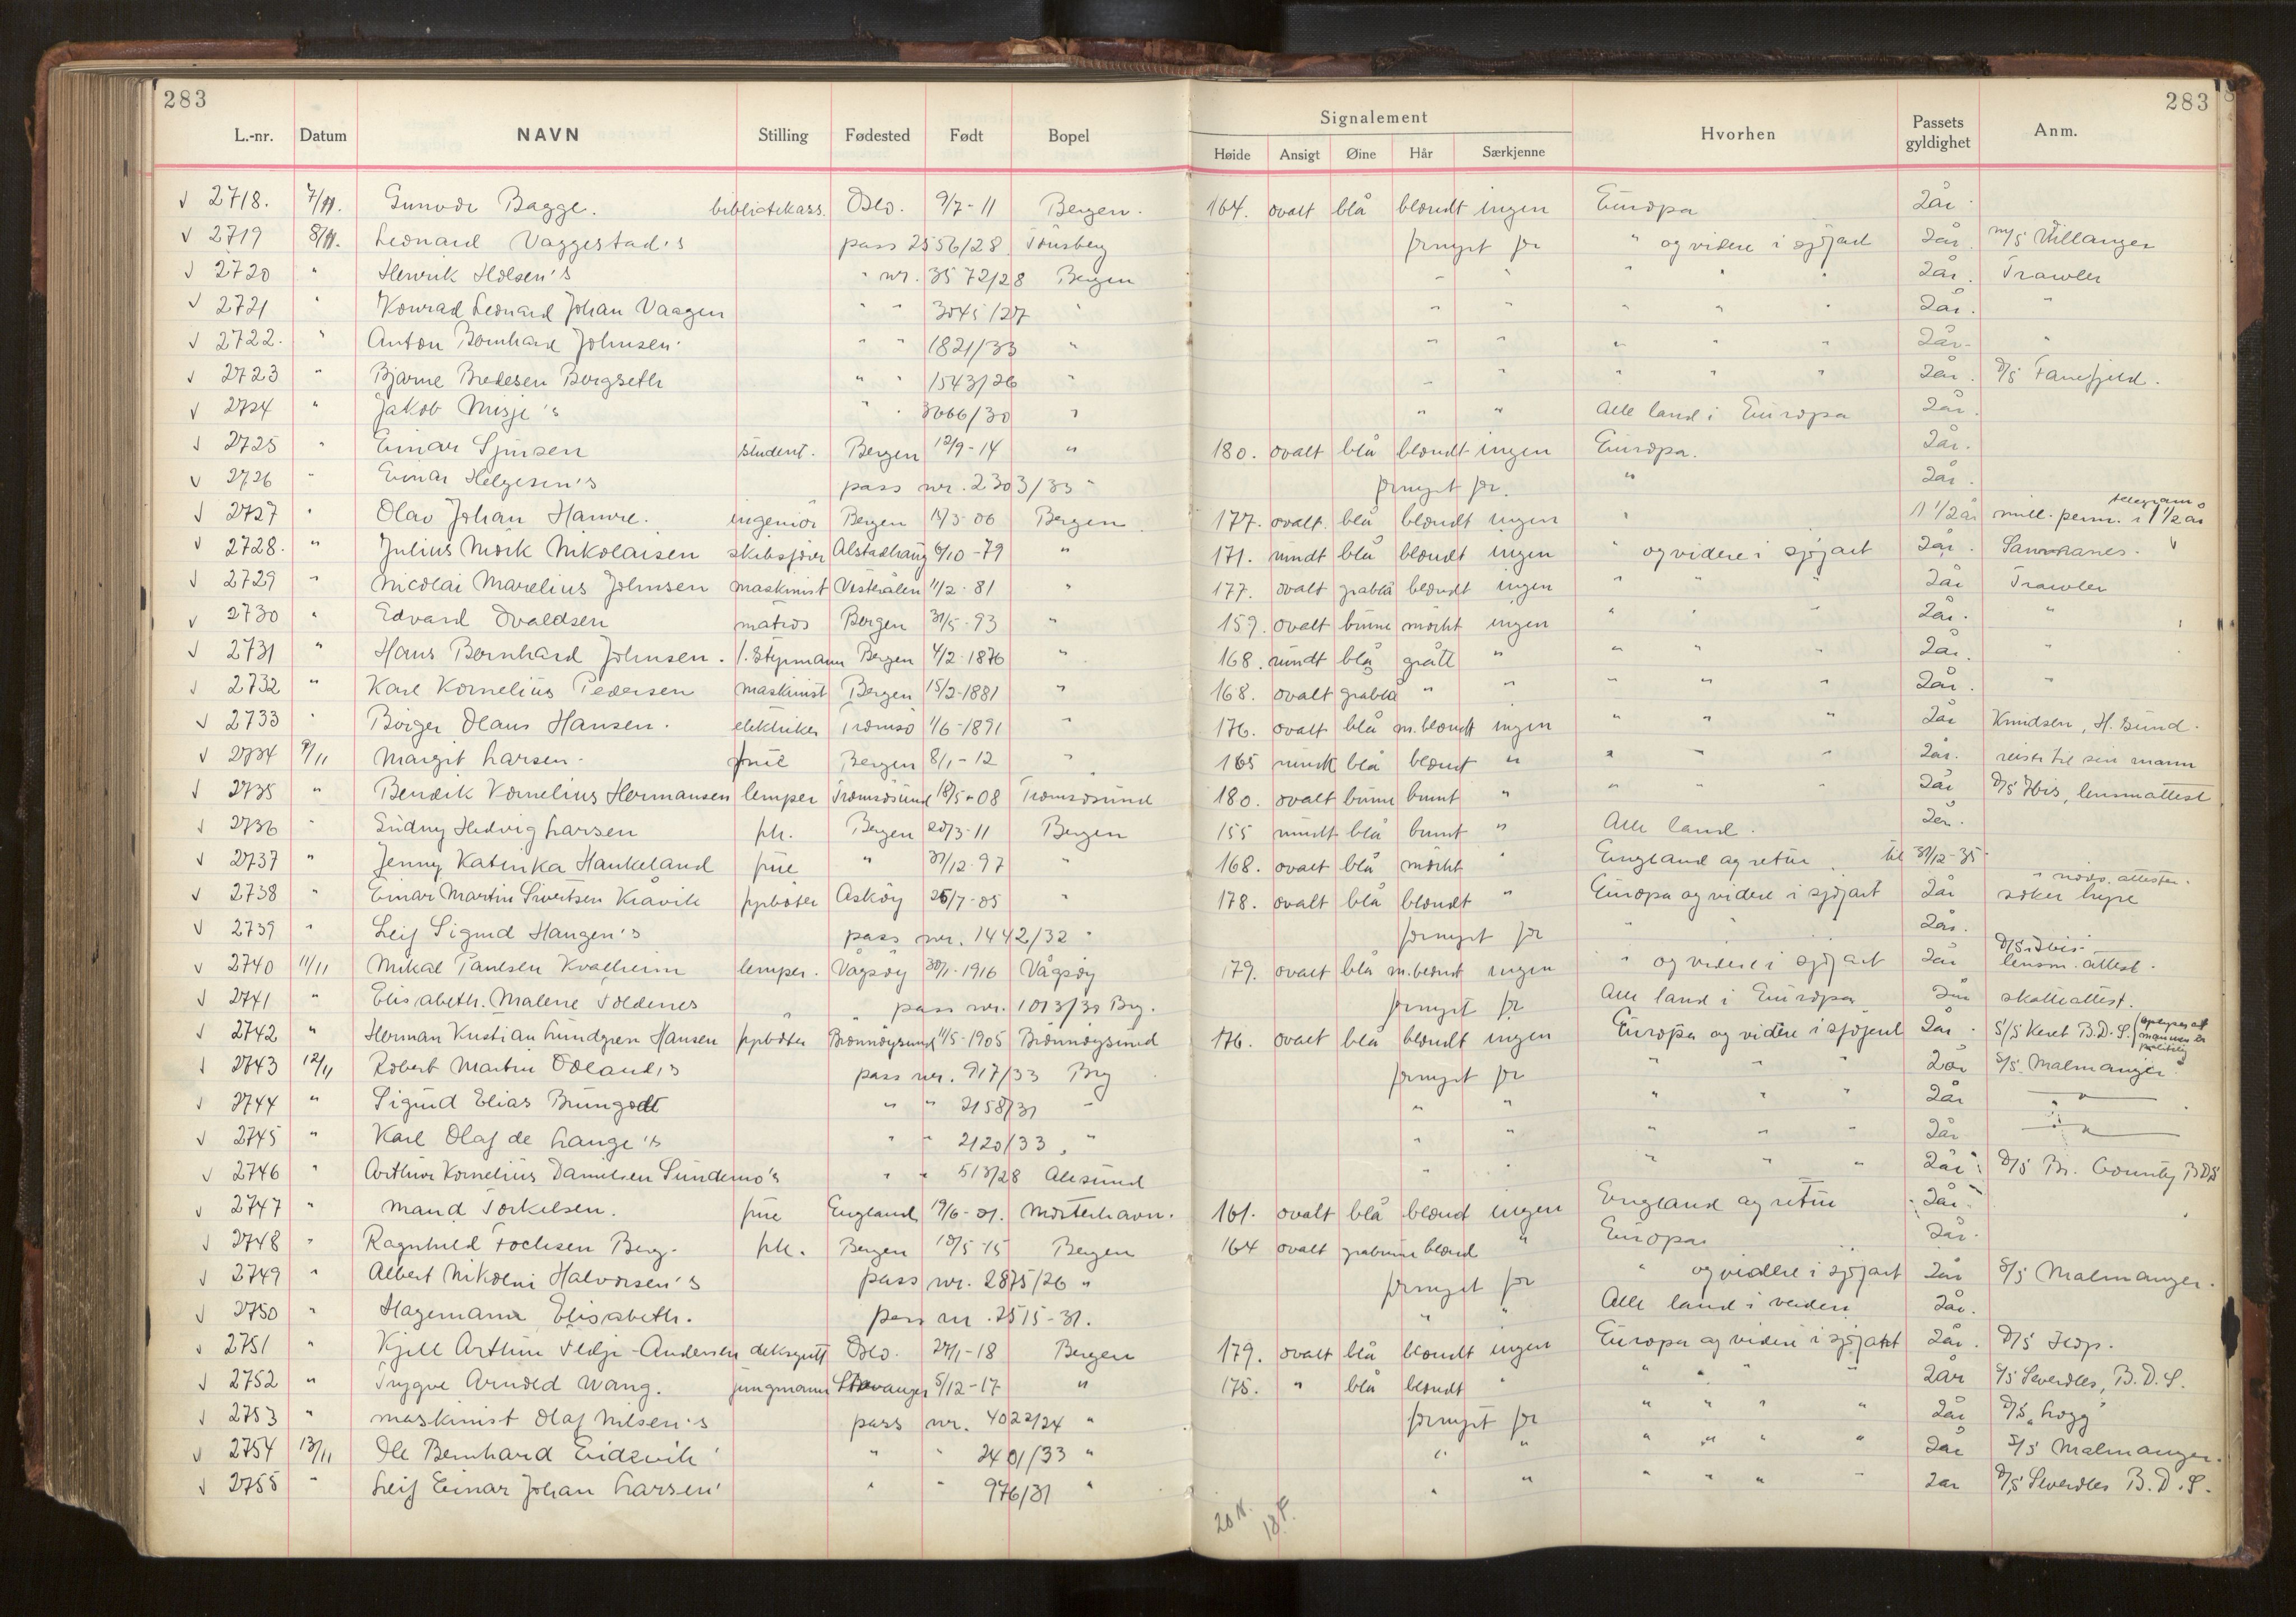 283 283
L.-nr. Datum NAVN Stilling Fødested Født Bopel Signalement Hvorhen Passets gyldighet Anm.
Høide Ansigt Øine Hår Særkjenne
√ 2718. 7/11. Gunvor Bagge. bibliotekass. Oslo. 9/7-11 Bergen. 164. ovalt blå blondt ingen Europa 2år.
√ 2719 8/11. Leonard Vaggestad's pass 2556/28 Tønsberg fornyet for " og videre i sjøfart 2år. m/s Villanger
√ 2720 " Henrik Holsen's " nr. 3572/28 Bergen " " " " " 2år. Trawler
√ 2721 " Konrad Leonard Johan Vaagen " " 3045/27 " " " " " " 2år. "
√ 2722. " Anton Bernhard Johnsen' " " 1821/33 " " " " " " 2år. "
√ 2723 " Bjarne Bredesen Borgseth " " 1543/26 " " " " " " 2år. D/S Fanefjeld.
√ 2724 " Jakob Misje's " " 3066/30 " " " Alle land i Europa 2år.
√ 2725 " Einar Sjursen student. Bergen 12/9-14 " 180. ovalt blå blondt ingen Europa. 2år.
√ 2726 " Einar Helgesen's pass nr. 2303/33 " fornyet for. " 2år.
√ 2727 " Olav Johan Hanvre. ingeniør Bergen 15/3-06 Bergen 177. ovalt. blå blondt ingen " 1 1/2 år mill. perm. i 1 1/2 år telegram
√ 2728. " Julius Mørk Nikolaisen skibsfører Alstadhaug 6/10-79 " 171. rundt blå blondt ingen " og videre i sjøfart 2år. Sanvranes.
√ 2729 " Nicolai Marelius Johnsen maskinist Vesterålen 11/2-81 " 177. ovalt gråblå blondt ingen " " " 2år Trawler
√ 2730 " Edvard Ovaldsen matros Bergen 31/5-93 " 159. ovalt brune mørkt ingen " " " 2år. "
√ 2731 " Hans Bernhard Johnsen. 1. styrmann Bergen 4/2-1876 " 168. rundt blå grått " " " " 2år. "
√ 2732 " Karl Kornelius Pedersen maskinist Bergen 15/2-1881 " 168. ovalt gråblå " " " " " 2år. "
√ 2733 " Börger Olaus Hansen. elektriker Tromsø 1/6-1891 " 176. ovalt blå m.blondt ingen " " " 2år Knudsen, H.sund.
√ 2734 9/11 Margit Larsen. frue Bergen 8/1-12 " 165 rundt blå blondt " " " " 2år. reiste til sin mann
√ 2735 " Bendik Kornelius Hermansen lemper Tromsøsund 18/5-08 Tromsøsund 180. ovalt brune brunt " " " " 2år D/S Ibis, lensm attest
√ 2736 " Gudny Hedvig Larsen frk. Bergen 20/3-11 Bergen 155 rundt blå brunt " Alle land. 2år.
√ 2737 " Jenny Katinka Haukeland frue " 31/12-97 " 168. ovalt blå mørkt " England og retur til 31/12-35
√ 2738 " Einar Martin Sivertsen Kråvik fyrbøter Askøy 25/7-05 " 178. ovalt blå blondt " Europa og videre i sjøfart 2år søker hyre nødv. attester.
√ 2739 " Leif Sigurd Haugen's pass nr. 1442/32 " fornyet for " " 2år.
√ 2740 11/11 Mikal Paulsen Kvalheim lemper. Vågsøy 30/1-1916 Vågsøy 179. ovalt blå m.blondt ingen " og videre i sjøfart 2år D/S Ibis lensm. attest.
√ 2741 " Elisabeth. Malene Toldenes " " pass nr. 1013/30 Bg. fornyet for Alle land i Europa 2år skatteattest.
√ 2742 " Herman Kristian Lundgren Hansen fyrbøter Brønnøysund 11/5-1905 Brønnøysund 176. ovalt blå blondt ingen Europa og videre i sjøfart 2år. S/S Keret B.D.S.
√ 2743 12/11 Robert Martin Odland's pass nr. 917/33 Brg fornyet for " " " 2år S/S Malmanger.
√ 2744 " Sigurd Elias Brungodt " " 2158/31 " " " " " " 2år "
√ 2745 " Karl Olaf de Lange's " " 2120/33 " " " " " " 2år "
√ 2746 " Arthur Kornelius Danielsen Sundemo's " " 513/28 Ålesund " " " " " 2år. D/S Br. County BDS
√ 2747 " Maud Torkelsen. frue England 19/6-01. Mosterhavn. 161. ovalt blå blond ingen England og retur 2år.
√ 2748 " Ragnhild Fochsen Berg. frk. Bergen 10/5-15 Bergen 164 ovalt gråbrune blond " Europa 2år.
√ 2749 " Albert Nikolai Halvorsen's pass nr. 2875/26 " fornyet for " og videre i sjøfart 2år S/S Malmanger.
√ 2750 " Hagemann Elisabeth. pass nr. 2515-31. " " Alle land i verden 2år.
√ 2751 " Kjell Arthur Tedje-Andersen deksgutt Oslo. 27/1-18 Bergen 179. ovalt blå blondt ingen Europa og videre i sjøfart 2år. D/S
√ 2752 " Trygve Arnold Wang. jungmann Stavanger 5/12-17 " 175. " blå blondt " " " " 2år S/S Leverdles, B.D.S.
√ 2753 " maskinist Olaf Nilsen's pass nr. 4022/24 " fornyet for " " " " 2år D/S „Logg"
√ 2754 13/11 Ole Bernhard Eidsvik' " " 2401/33 " " " " " " " 2år S/S Malmanger.
√ 2755 " Leif Einar Johan Larsen' " " 976/31 " " " " " " " 2år D/S Leverdles B.D.S.
20 N. 18 F.